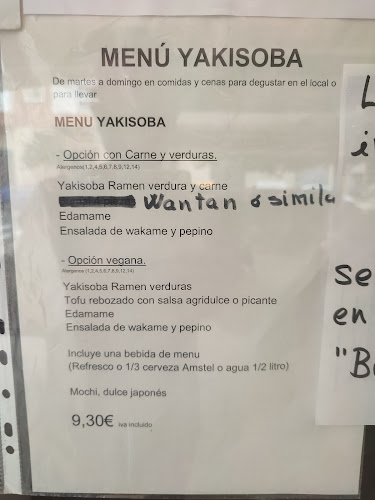 MENÚ YAKISOBA
De martes a domingo en comidas y cenas para degustar en el local o
para llevar
MENU YAKISOBA
- Opción con Carne y verduras.
Alergenos(1,2,4,5,6,7,8,9,12,14)
Yakisoba Ramen verdura y carne
Wantan o simila
Edamame
Ensalada de wakame y pepino
- Opción vegana.
Alergenos (1,2,4,5,6,7,8,9,12,14)
Yakisoba Ramen verduras
Tofu rebozado con salsa agridulce o picante
Edamame
Ensalada de wakame y pepino
Incluye una bebida de menu
(Refresco o 1/3 cerveza Amstel o agua 1/2 litro)
Mochi, dulce japonés
9,30€ iva incluido
L
i
Se
en
"B